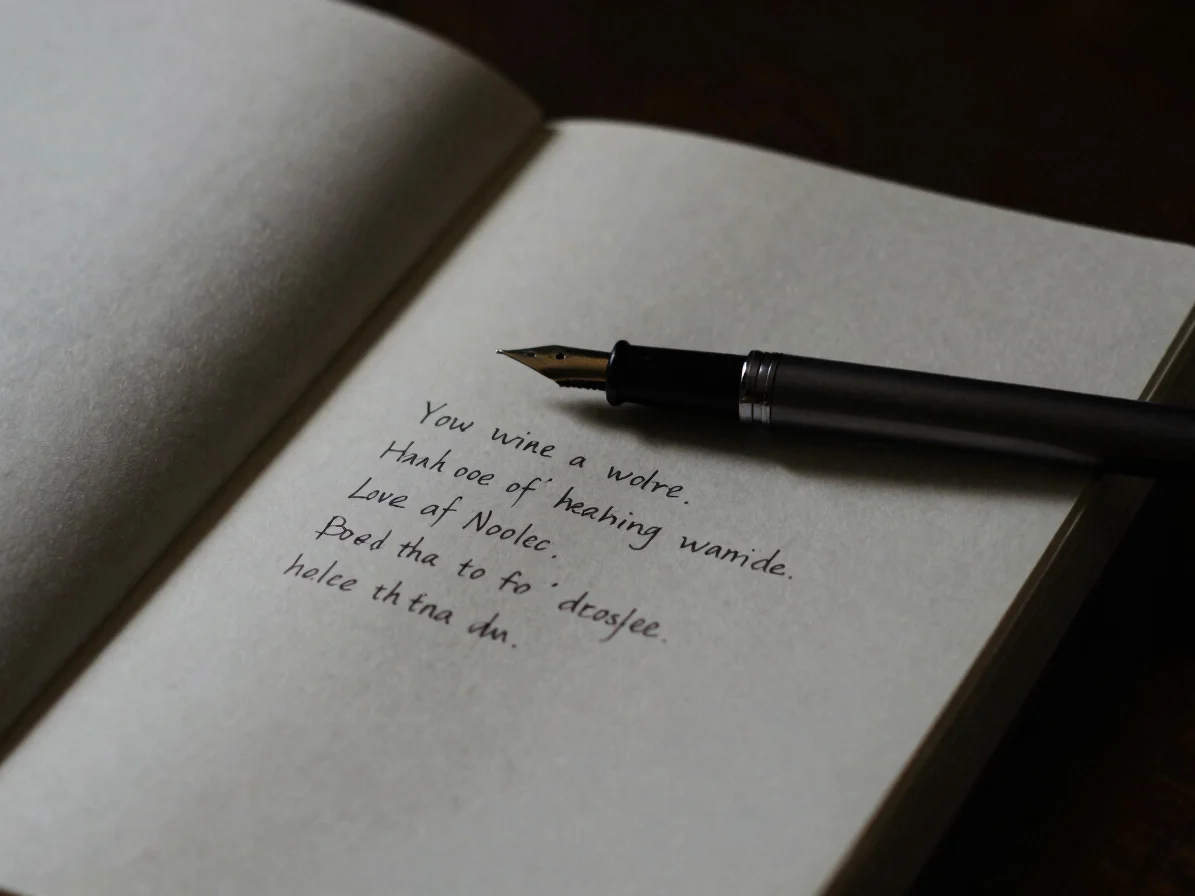 Yow wine a wolre.
Hahh ooe of' heahing wamide.
Love af Noolec.
Boed tha to fo' drosfee.
holce th tna du.